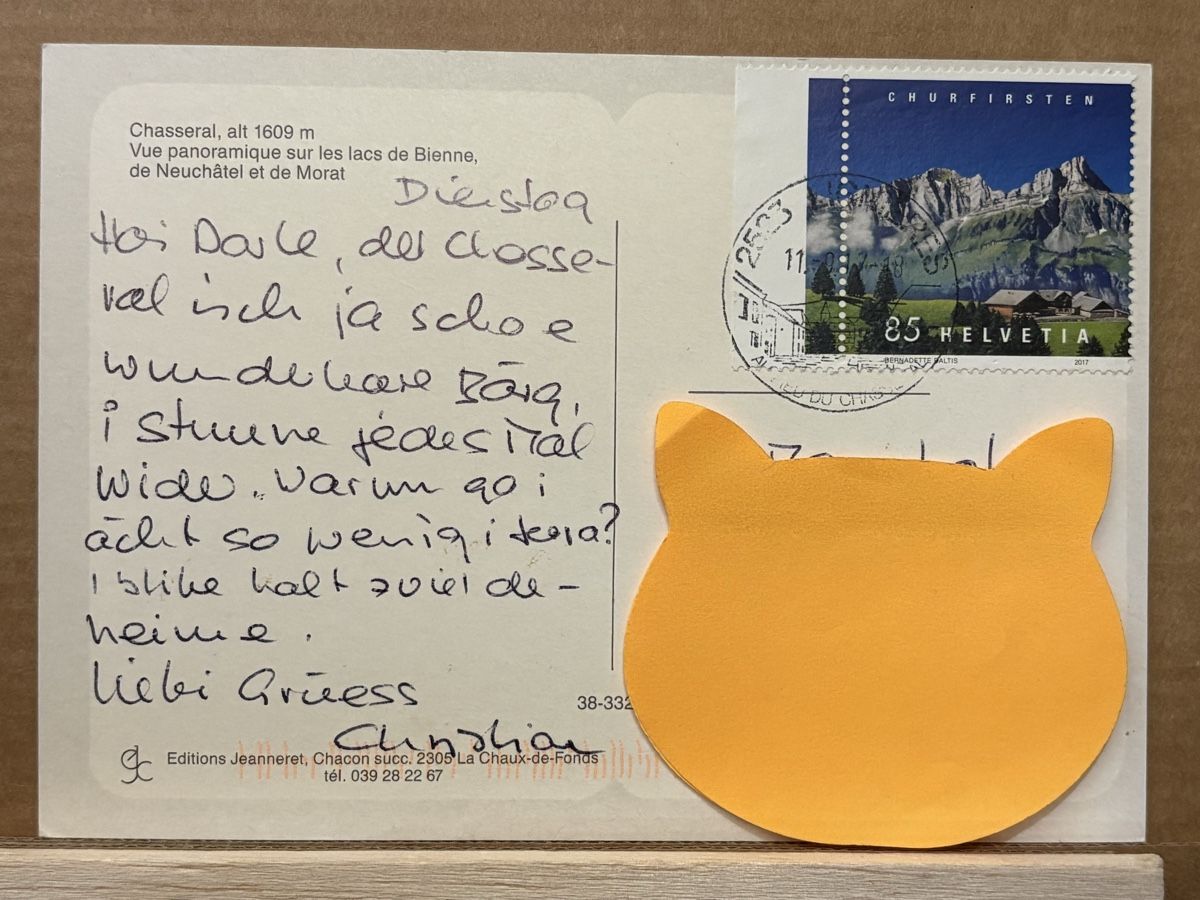 Chasseral, alt 1609 m
Vue panoramique sur les lacs de Bienne,
de Neuchâtel et de Morat
Dienstag
Hoi Darle, der Chasse-
ral isch ja scho e
wunderbare Bärg,
i stuune jedes Mal
wider. Warum go i
ächt so wenig i Jura?
I blibe halt zviel de-
heime.
Liebi Grüess
Christian
38-332
Editions Jeanneret, Chacon succ. 2305 La Chaux-de-Fonds
tél. 039 28 22 67
gjc
CHURFIRSTEN
85 HELVETIA
BERNADETTE BALTIS
2017
2523
DU CHAS